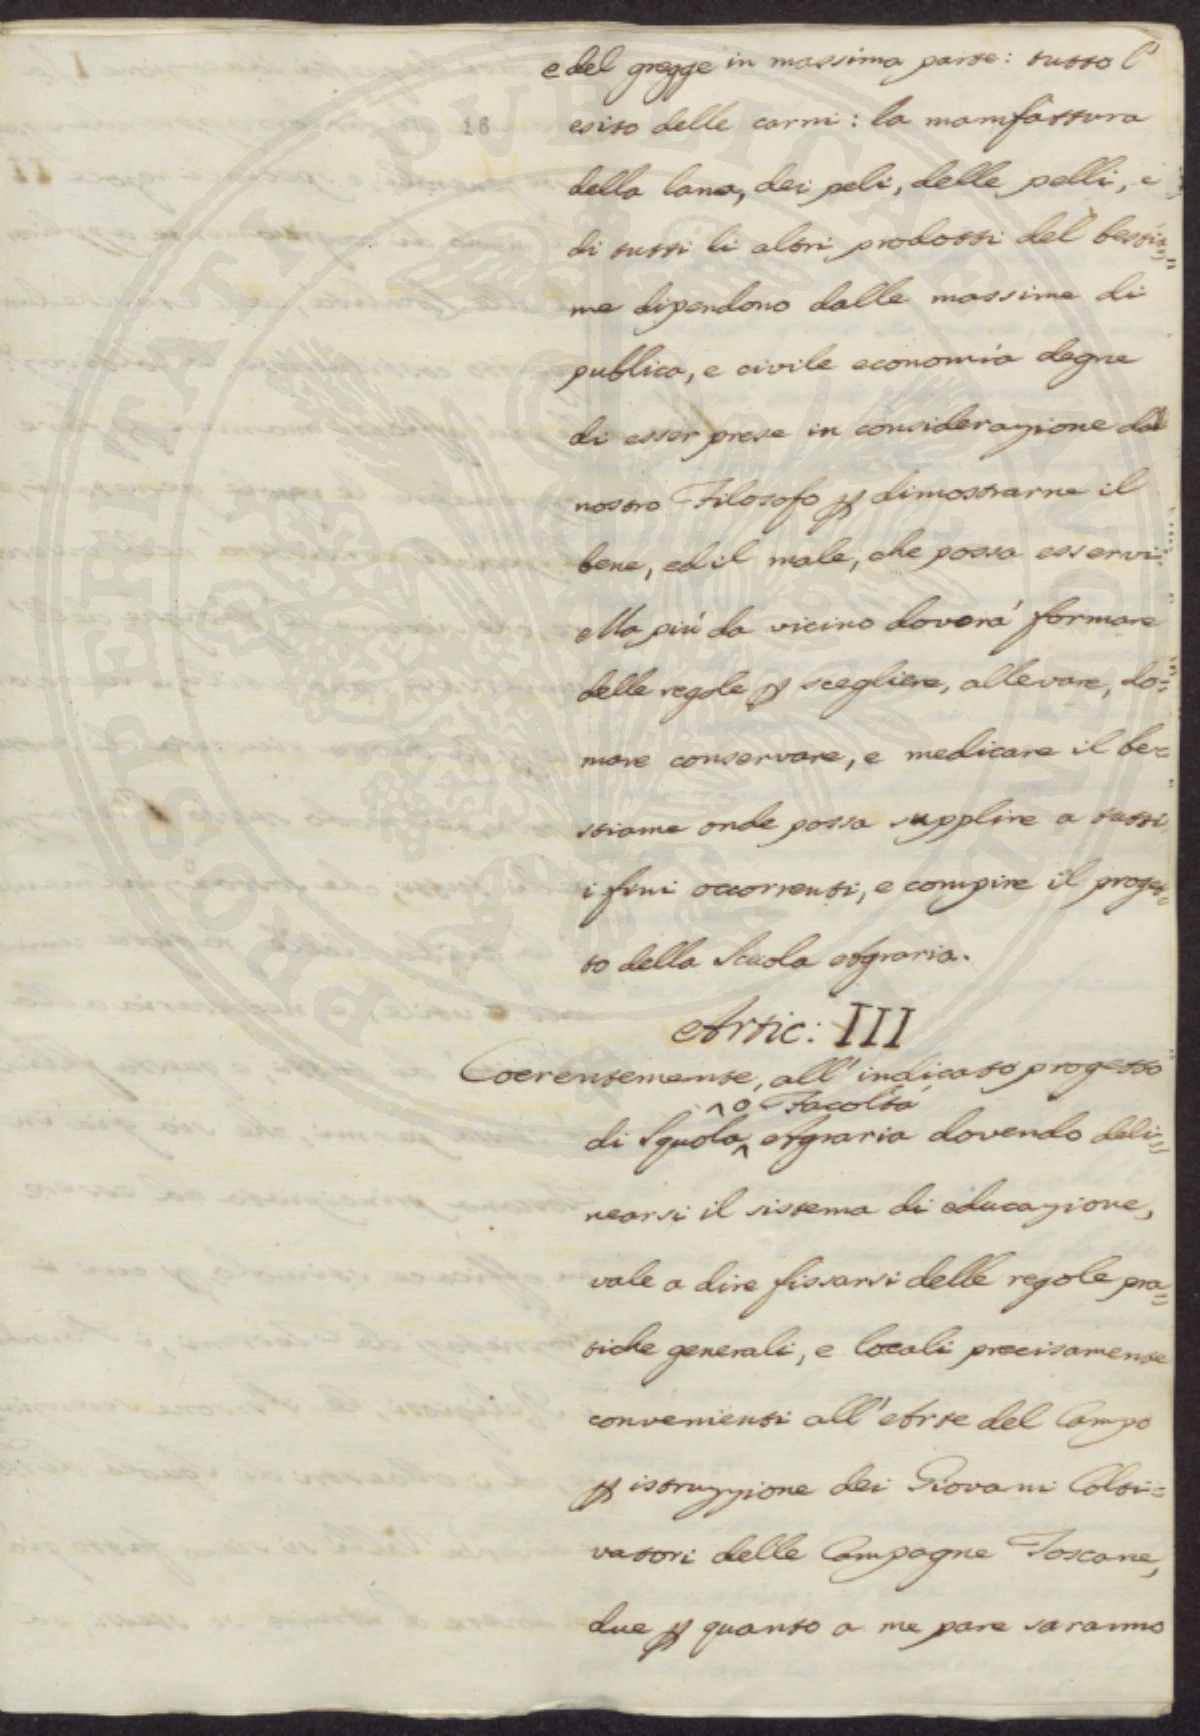 16
e del gregge in massima parte: tutto l'
esito delle carni: la manifattura
della lana, dei peli, delle pelli, e
di tutti li altri prodotti del bestia=
me dipendono dalle massime di
publica, e civile economia degne
di esser prese in considerazione dal
nostro Filosofo p dimostrarne il
bene, ed il male, che possa esservi:
Ma piú da vicino doverá formare
delle regole p scegliere, allevare, do=
mare conservare, e medicare il be=
stiame onde possa supplire a tutti
i fini occorrenti, e compire il proget=
to della Scuola Agraria.
Artic: III
Coerentemente, all' indicato progetto
^ o Facoltá
di Squola ^ Agraria dovendo deli=
nearsi il sistema di educazione,
vale a dire fissarsi delle regole pra=
tiche generali, e locali precisamente
convenienti all' Arte del Campo
p istruzzione dei Giovani Colti=
vatori delle Campagne Toscane,
due p quanto a me pare saranno
PROSPERITATI PUBLICAE AUGENDAE